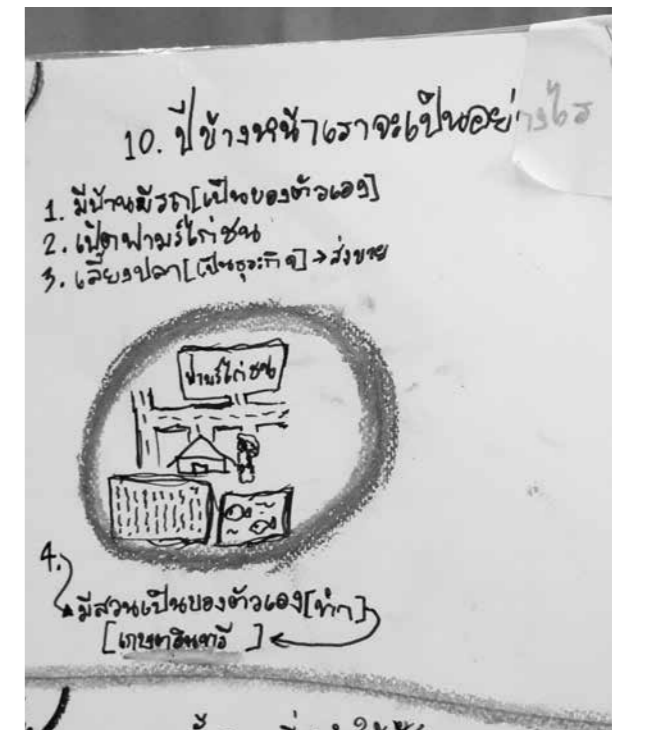 10. ปีข้างหน้าเราจะเป็นอย่างไร
1. มีบ้านมีรถ[เป็นของตัวเอง]
2. เปิดฟามร์ไก่ชน
3. เลี้ยงปลา[เป็นธุระกิจ]→ส่งขาย
ฟามร์ไก่ชน
4.
มีสวนเป็นของตัวเอง[ทำก]
[เกษตอินทรี ]